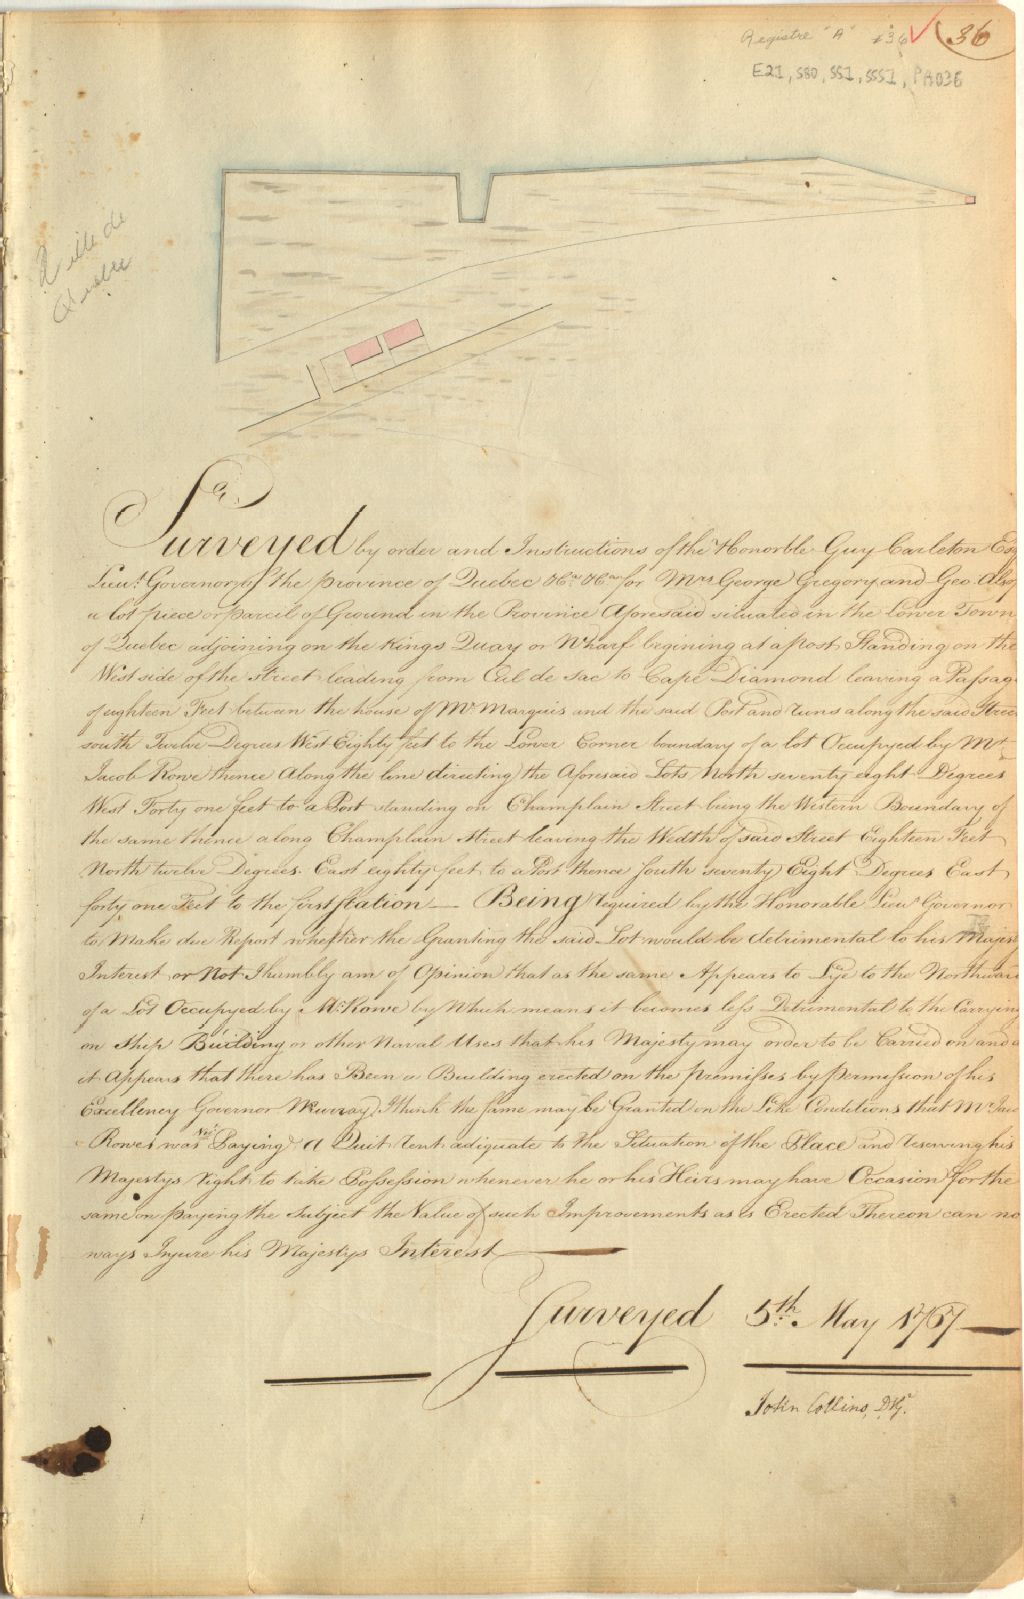 Registre "A" #36 36
E21, S80, SS1, SSS1, PA036
Ville de
Québec
Surveyed by order and Instructions of the Honorble Guy Carleton Esq
Lieut. Governor of the province of Quebec &ca &ca for Mrs George Gregory and Geo. Alsop
a lot piece or parcil of Ground in the Province Aforesaid situated in the Lower Town
of Quebec adjoining on the Kings Quay or Wharf begining at a post Standing on the
West side of the Street leading from Cul de sac to Cape Diamond leaving a Passag
of eighteen Feet between the house of Mr. Marquis and the said Post and runs along the said Stree
south Twelve Degrees West Eighty feet to the Lower Corner boundary of a lot Occupyed by Mr.
Jacob Rowe thence Along the line directing the Aforesaid Lots North seventy eight Degrees
West Forty one feet to a Post standing on Champlain Street being the Western Boundary of
the same thence along Champlain Street leaving the Wedth of said Street Eighteen Feet
North twelve Degrees East eighty feet to a Post thence South seventy Eight Degrees East
forty one Feet to the first Station — Being required by the Honorable Lieut. Governor
to Make due Report whether the Granting the said Lot would be detrimental to his Majesty
Interest or Not I humbly am of Opinion that as the same Appears to Lye to the Northward
of a Lot Occupyed by Mr. Rowe by Which means it becomes less Detrimental to the Carrying
on Ship Building or other Naval Uses that his Majesty may order to be Carried on and a
it Appears that there has Been a Building erected on the premisses by permission of his
Excellency Governor Murray, I think the same may be Granted on the Like Conditions that Mr Jac
Rowes was Viz. Paying A Quit rent adiquate to the Situation of the Place and reserving his
Majestys right to take Possession whenever he or his Heirs may have Occasion for the
same on paying the Subject the Value of such Improvements as is Erected Thereon can no
ways Injure his Majestys Interest —
Surveyed 5th. May 1767 —
John Collins, D.